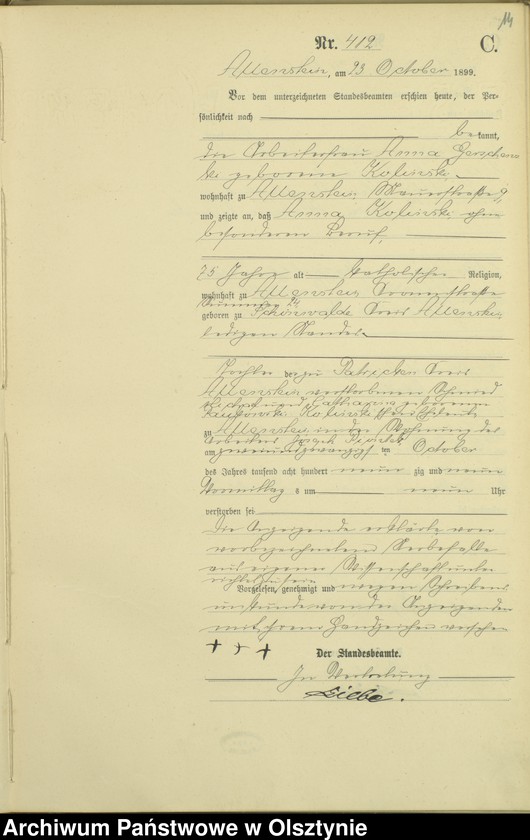 14
Nr. 412
C.
Allenstein, am 23 October 1899.
Vor dem unterzeichneten Standesbeamten erschien heute, der Per-
sönlichkeit nach
bekannt,
die Arbeiterfrau Anna
geborene Kolinski
wohnhaft zu Allenstein, Mauerstraße 9,
und zeigte an, daß Anna Kolinski ohne
besonderen Beruf,
25 Jahre alt katholischer Religion,
wohnhaft zu Allenstein
Nummer 24
geboren zu Schönwalde Kreis Allenstein,
ledigen Standes
Tochter der zu Patricken Kreis
Allenstein verstorbenen Schmied
und Catharina geborenen
Kolinski
zu Allenstein in der Wohnung des
Arbeiters Josef
am zweiundzwanzigsten October
des Jahres tausend acht hundert neunzig und neun
Vormittags um neun Uhr
verstorben sei
Die Anzeigende erklärte von
vorbezeichnetem Sterbefalle
aus eigener Wissenschaft unter-
richtet zu sein
Vorgelesen, genehmigt und wegen Schreibens
unkunde von der Anzeigenden
mit ihrem Handzeichen versehen
+ + +
Der Standesbeamte.
In Vertretung
Liebe.
Archiwum Państwowe w Olsztynie